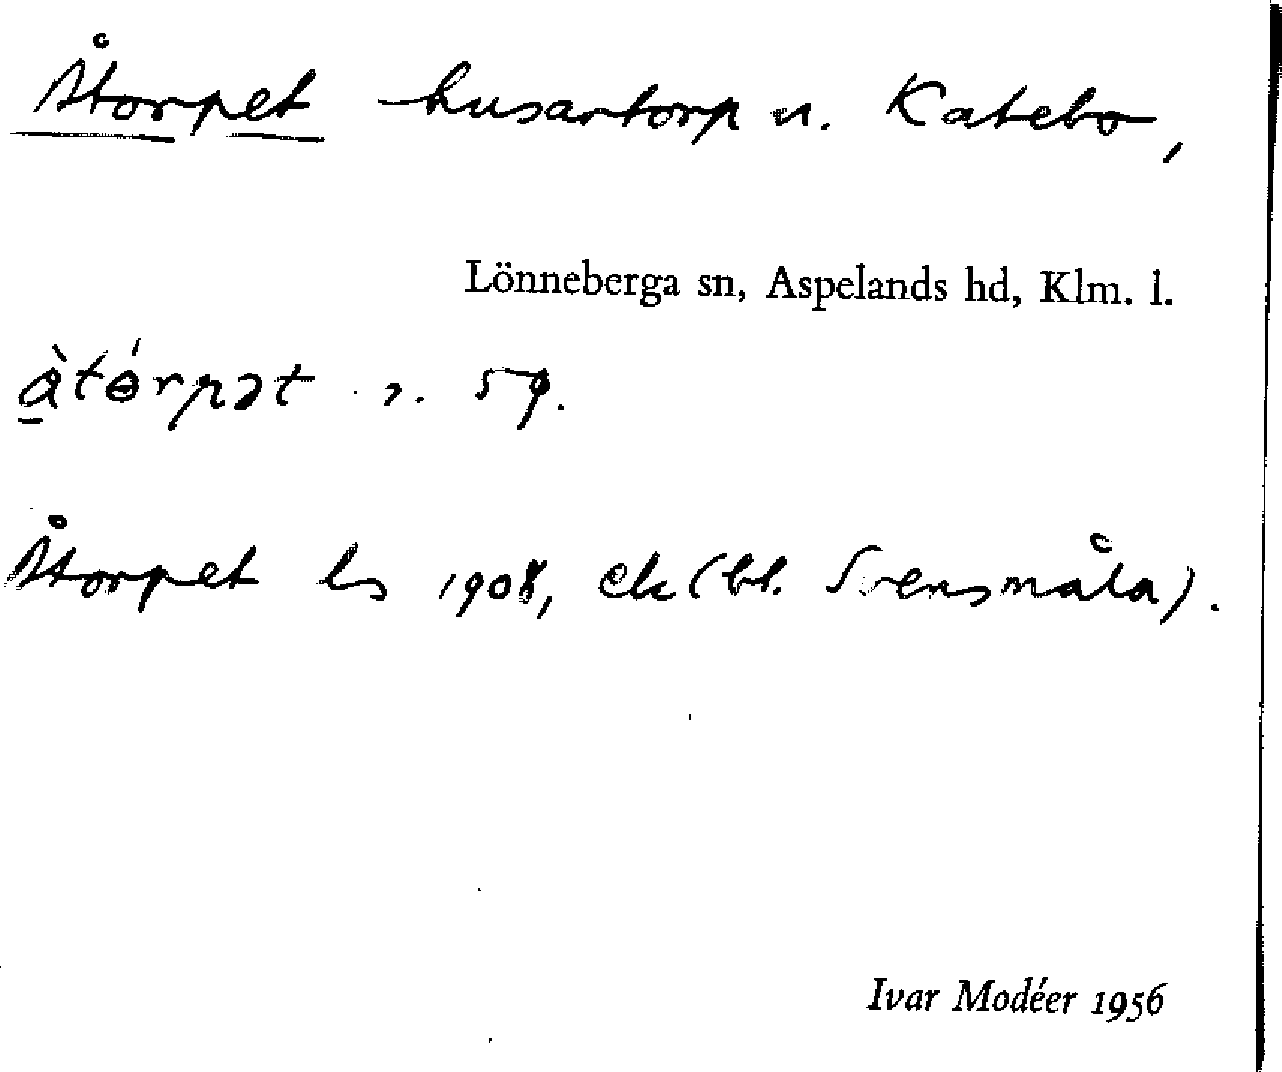 Åtorpet husartorp u. Katebo,
Lönneberga sn, Aspelands hd, Klm. l.
å̀tɵ́rpət 59.
Åtorpet ls 1908, ek (bl. Svensmåla).
Ivar Modéer 1956